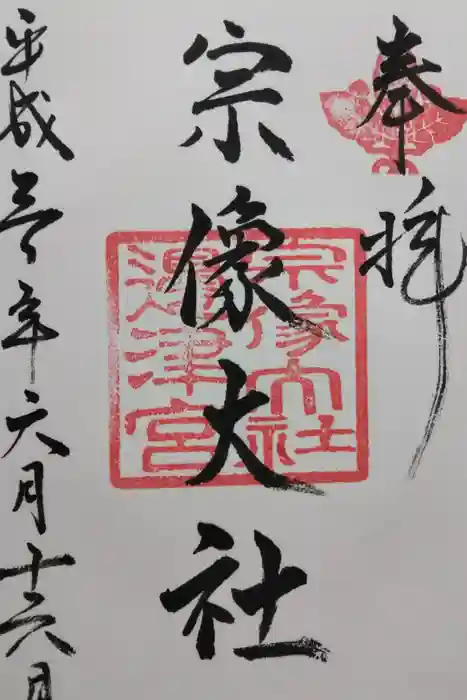 奉拝
宗像大社
宗像大社
邊津宮
平成三十年六月十六日